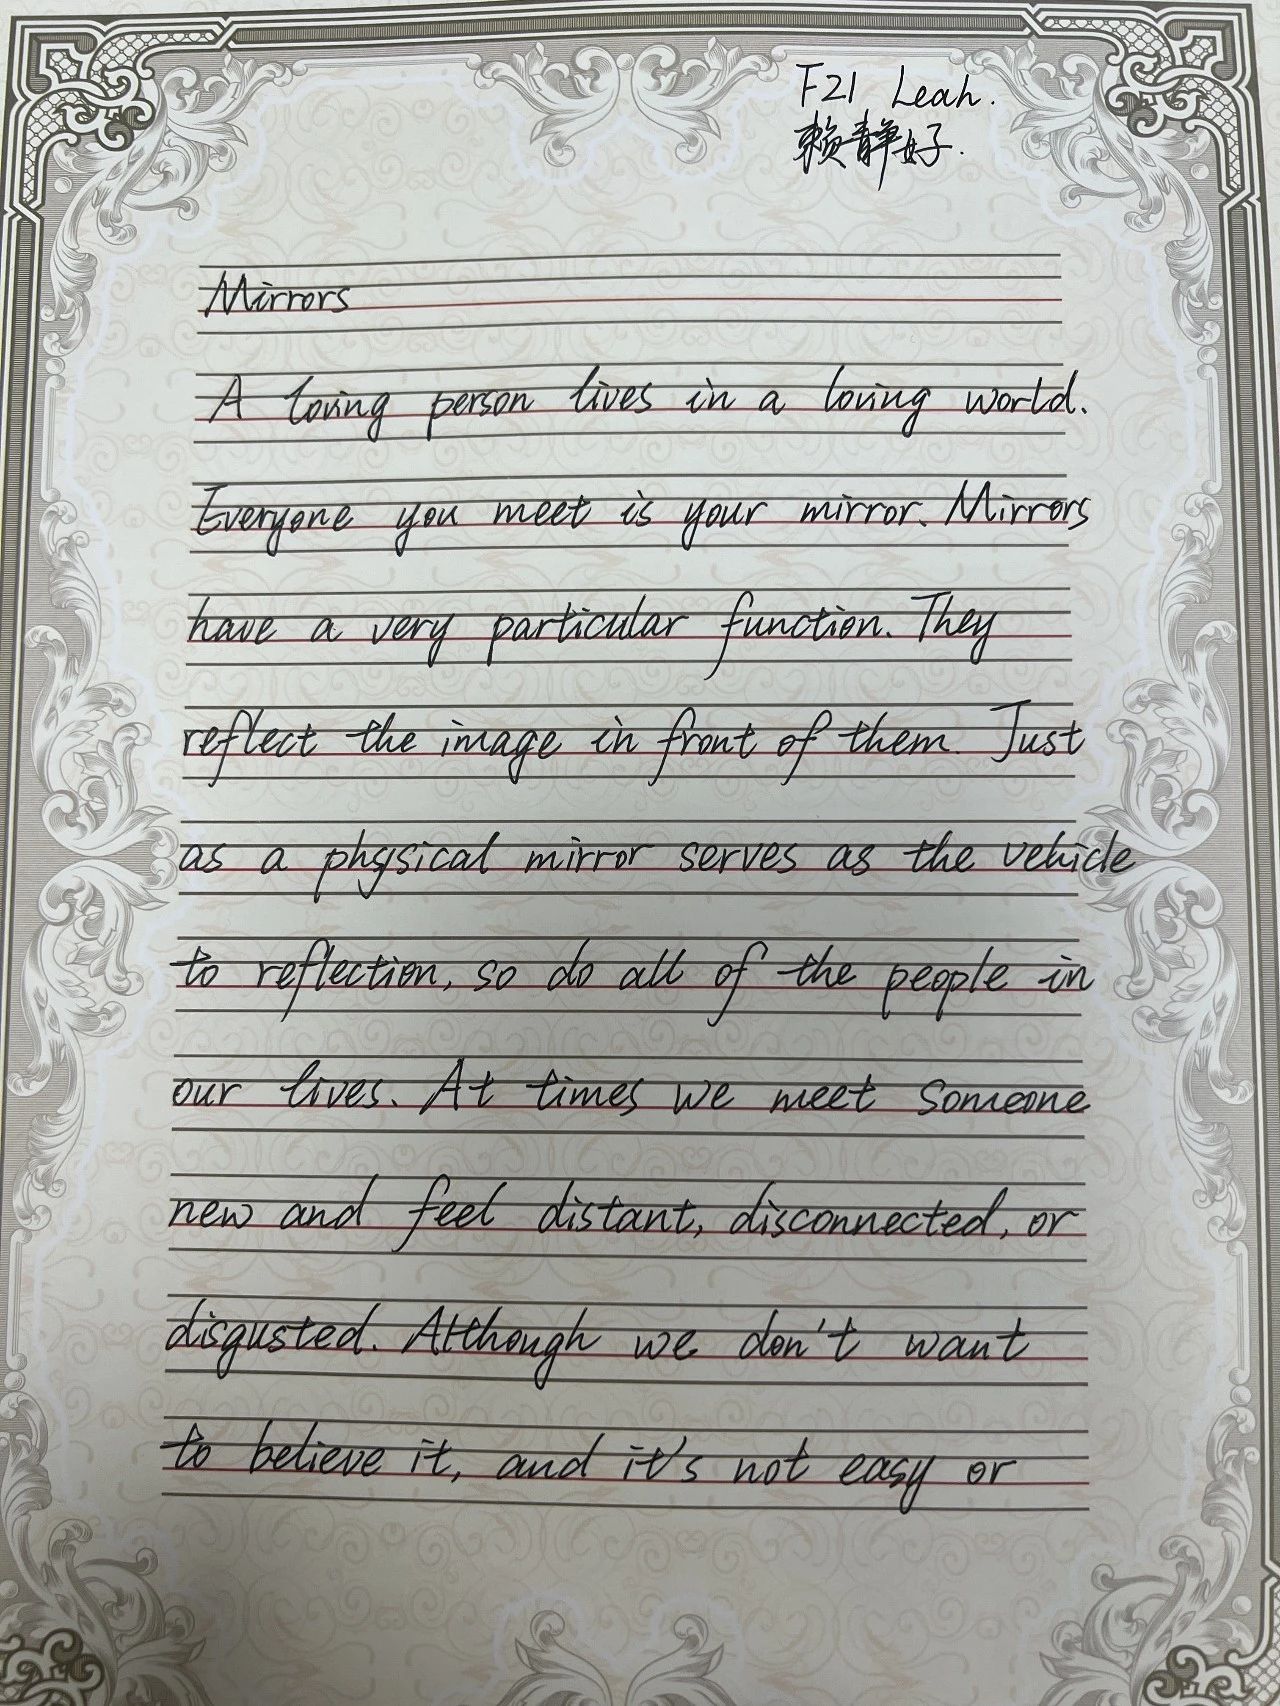 F21 Leah.
赖静好.
Mirrors
A loving person lives in a loving world.
Everyone you meet is your mirror. Mirrors
have a very particular function. They
reflect the image in front of them. Just
as a physical mirror serves as the vehicle
to reflection, so do all of the people in
our lives. At times we meet someone
new and feel distant, disconnected, or
disgusted. Although we don't want
to believe it, and it's not easy or